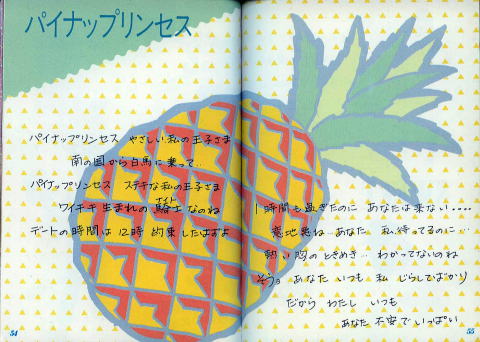 パイナップリンセス
パイナップリンセス やさしい私の王子さま
南の国から白馬に乗って..
パイナップリンセス ステキな私の王子さま
ワイキキ生まれの騎士なのね
ナイト
デートの時間は12時 約束したはずよ
1時間も過ぎたのに あなたは来ない....
意地悪ね...あなた 私、待ってるのに...
熱い胸のときめき... わかってないのね
そうョ あなた いつも 私 じらしてばかり
だから わたし いつも
あなた 不安で いっぱい
54
55